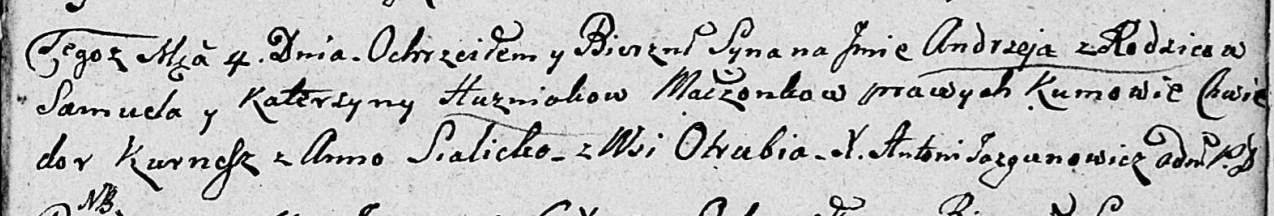 Tegoz Mca 4. Dnia. Ochrzciłem y Bierzm Syna na Jmie Andrzeja z Rodzicow
Samuela y Katerzyny Huzniakow Małżonkow prawych Kumowie Chwie
dor Kurnesz z Anno Sialicko z Wsi Otrubia. X. Antoni Jazgunowicz adm
NB.